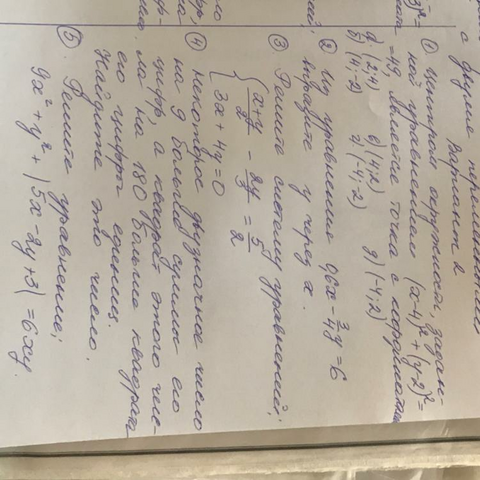 с двумя переменными
Вариант 2
① Центром окружности, задан-
ной уравнением (x-4)²+(y-2)²=
=49, является точка с координатами
а) (2;4) в) (4;2) д) (-4;2)
б) (4;-2) г) (-4;-2)
② Из уравнения 0,6x - 3/4 y = 6
выразите y через x.
③ Решите систему уравнений:
{ (x+y)/2 - 2y/3 = 5/2
3x + 4y = 0
④ Некоторое двузначное число
на 9 больше суммы его
цифр, а квадрат этого чис-
ла на 180 больше квадрата
его цифры единиц.
Найдите это число.
⑤ Решите уравнение:
9x² + y² + |5x - 2y + 3| = 6xy.